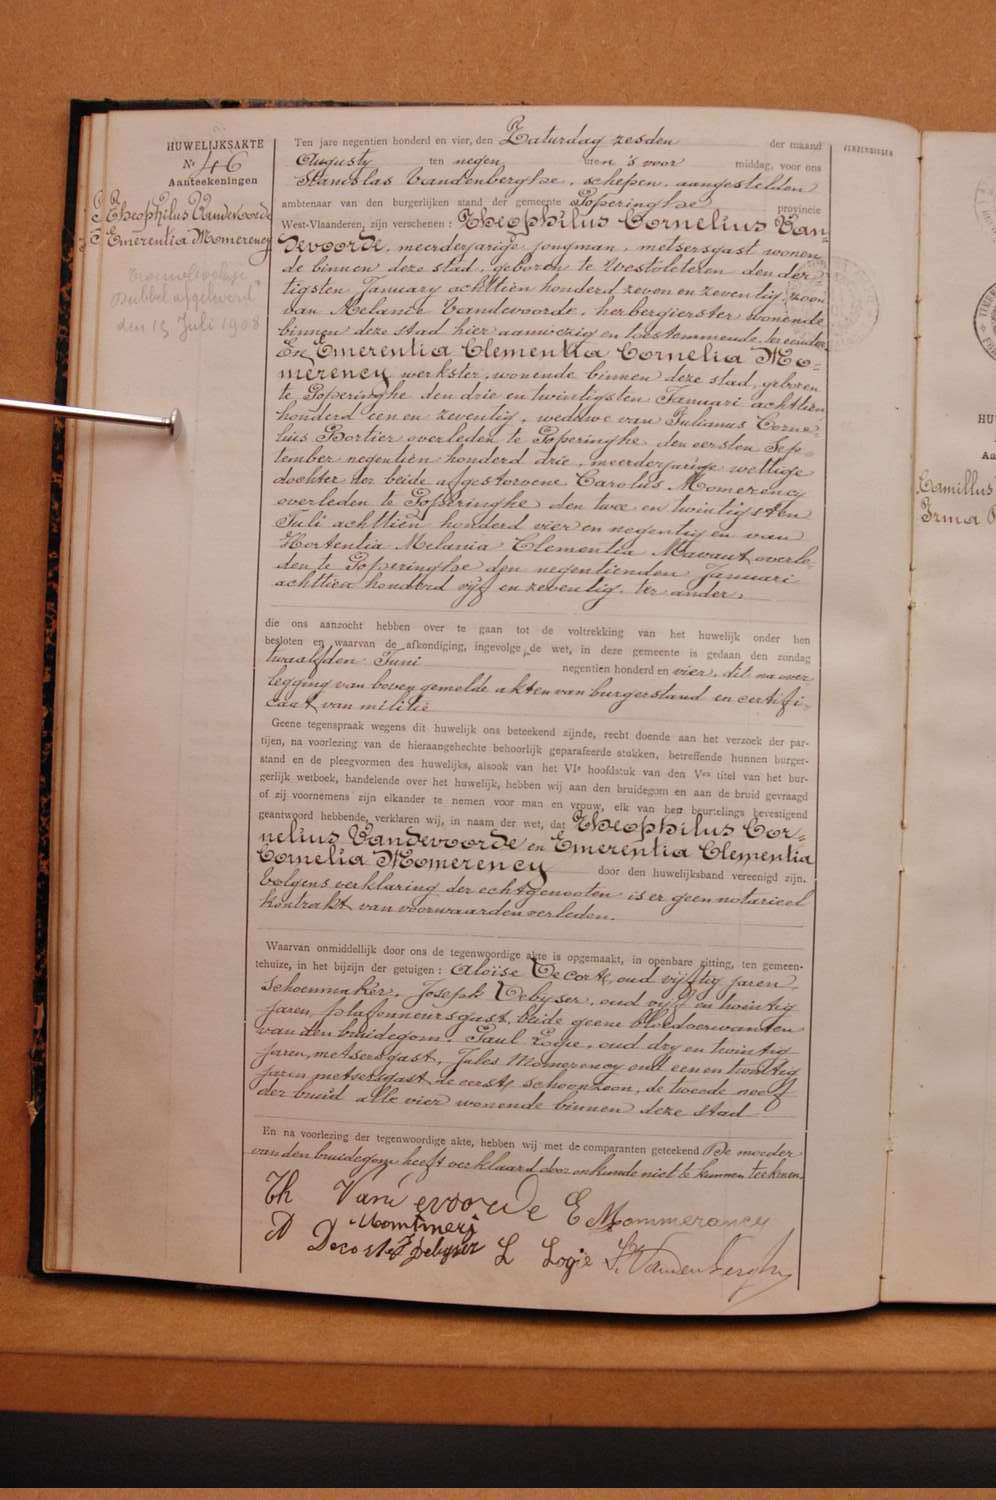 HUWELIJKSAKTE
Nr 46
Aanteekeningen
Theophilus Vandevoorde
& Emerentia Momerency
dubbel afgeleverd
den 15 Juli 1908
VERZENDINGEN
Ten jare negentien honderd en vier, den Zaturdag zesden der maand
Augusty ten negen uren 's voor middag, voor ons
Stanislas Vandenberghe, schepen, aangestelden
ambtenaar van den burgerlijken stand der gemeente Poperinghe provincie
West-Vlaanderen, zijn verschenen : Theophilus Cornelius Van-
devoorde, meerderjarige jongman, metsersgast wonen
de binnen deze stad, geboren te Westvleteren den der
tigsten January achttien honderd zeven en zeventig, zoon
van Melanie Vandevoorde, herbergierster wonende
binnen deze stad hier aanwezig en toestemmende, ter eender.
En Emerentia Clementia Cornelia Mo-
merency werkster, wonende binnen deze stad, geboren
te Poperinghe den drie en twintigsten Januari achttien
honderd een en zeventig, weduwe van Julianus Corne-
lius Bortier overleden te Poperinghe den eersten Sep-
tember negentien honderd drie, meerderjarige wettige
dochter der beide afgestorvene Carolus Momerency
overleden te Poperinghe den twee en twintigsten
Juli achttien honderd vier en negentig en van
Hortentia Melania Clementia Mavaut overle-
den te Poperinghe den negentienden Januari
achttien honderd vijf en zeventig. ter ander.
die ons aanzocht hebben over te gaan tot de voltrekking van het huwelijk onder hen
besloten en waarvan de afkondiging, ingevolge de wet, in deze gemeente is gedaan den zondag
twaalfden Juni negentien honderd en vier, dit na over
legging van boven gemelde akten van burgerstand en certifi-
caat van militie
Geene tegenspraak wegens dit huwelijk ons beteekend zijnde, recht doende aan het verzoek der par-
tijen, na voorlezing van de hieraangehechte behoorlijk geparafeerde stukken, betreffende hunnen burger-
stand en de pleegvormen des huwelijks, alsook van het VIe hoofdstuk van den Ven titel van het bur-
gerlijk wetboek, handelende over het huwelijk, hebben wij aan den bruidegom en aan de bruid gevraagd
of zij voornemens zijn elkander te nemen voor man en vrouw, elk van hen beurtelings bevestigend
geantwoord hebbende, verklaren wij, in naam der wet, dat Theophilus Cor-
nelius Vandevoorde en Emerentia Clementia
Cornelia Momerency door den huwelijksband vereenigd zijn.
Volgens verklaring der echtgenooten is er geen notarieel
kontrakt van voorwaarden verleden.
Waarvan onmiddellijk door ons de tegenwoordige akte is opgemaakt, in openbare zitting, ten gemeen-
tehuize, in het bijzijn der getuigen : Aloïse Decorte, oud vijftig jaren,
schoenmaker, Joseph Debyser, oud vijf en twintig
jaren, plafonneursgast, beide geene bloedverwanten
van den bruidegom, Paul Logie, oud dry en twintig
jaren, metsersgast, Jules Momerency oud een en twintig
jaren metsersgast, de eerste schoonzoon, de tweede neef
der bruid alle vier wonende binnen deze stad
En na voorlezing der tegenwoordige akte, hebben wij met de comparanten geteekend De moeder
van den bruidegom heeft verklaard door onkunde niet te kunnen teekenen.
Th Vandevoorde E Mommerancy
A Decorte J Debyser L Logie St. Vandenberghe
HU
Aa
Camillus
Irma